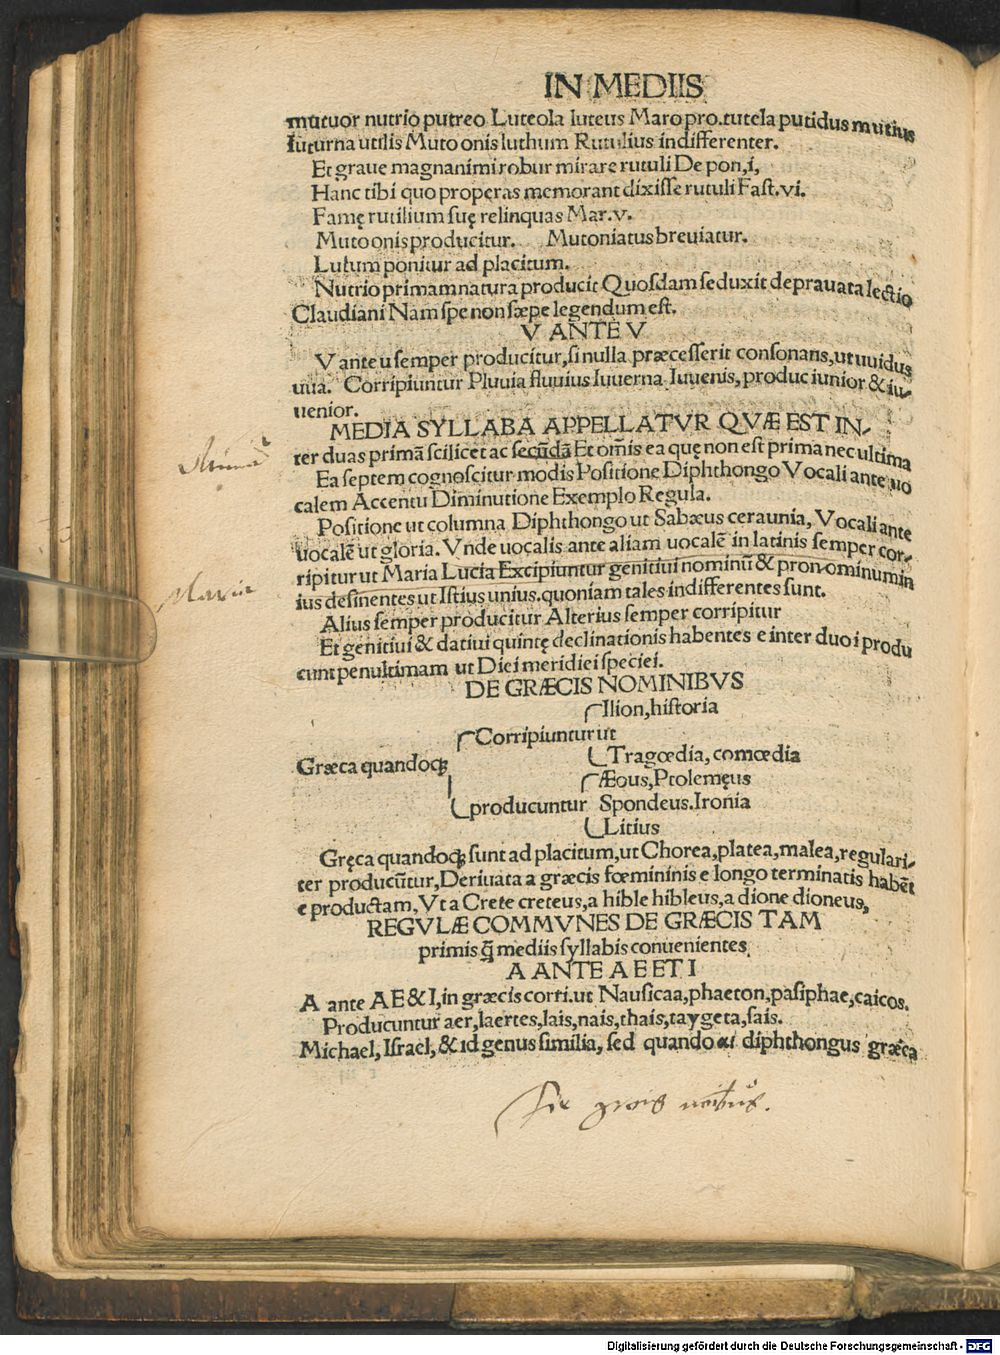 IN MEDIIS
mutuor nutrio putreo Luteola luteus Maro pro.tutela putidus mutius
futurna utilis Muto onis luthum Rutulius indifferenter.
Et graue magnanimi robur mirare rutuli De pon,i,
Hanc tibi quo properas memorant dixisse rutuli Fast.vi.
Famę rutilium suę relinquas Mar.v.
Muto onis producitur. Mutoniatus breuiatur.
Lutum ponitur ad placitum.
Nutrio primam natura producit Quosdam seduxit deprauata lectio
Claudiani Nam spe non sæpe legendum est.
V ANTE V
V ante u semper producitur, si nulla præcesserit consonans, ut uuidus
uua. Corripiuntur Pluuia fluuius Iuuerna Iuuenis, produc iunior & iu-
uenior.
MEDIA SYLLABA APPELLATVR QVÆ EST IN-
ter duas primã scilicet ac secũdã Et om̃is ea quę non est prima nec ultima
Ea septem cognoscitur modis Positione Diphthongo Vocali ante uo
calem Accentu Diminutione Exemplo Regula.
Positione ut columna Diphthongo ut Sabæus ceraunia, Vocali ante
uocalẽ ut gloria. Vnde uocalis ante aliam uocalẽ in latinis semper cor-
ripitur ut Maria Lucia Excipiuntur genitiui nominũ & pronominum in
ius desinentes ut Istius unius. quoniam tales indifferentes sunt.
Alius semper producitur Alterius semper corripitur
Et genitiui & datiui quintę declinationis habentes e inter duo i produ
cunt penultimam ut Diei meridiei speciei.
DE GRÆCIS NOMINIBVS
Ilion, historia
Corripiuntur ut
Tragœdia, comœdia
Græca quandoq;
Æous, Ptolemęus
producuntur Spondeus. Ironia
Litius
Gręca quandoq; sunt ad placitum, ut Chorea, platea, malea, regulari-
ter producũtur, Deriuata a græcis fœmininis e longo terminatis habẽt
e productam, Vt a Crete creteus, a hible hibleus, a dione dioneus,
REGVLÆ COMMVNES DE GRÆCIS TAM
primis q̃ mediis syllabis conuenientes,
A ANTE A E ET I
A ante A E & I, in græcis corri. ut Nausicaa, phaeton, pasiphae, caicos.
Producuntur aer, laertes, lais, nais, thais, taygeta, sais.
Michael, Israel, & id genus similia, sed quando αι diphthongus græca
Maria
Digitalisierung gefördert durch die Deutsche Forschungsgemeinschaft - DFG